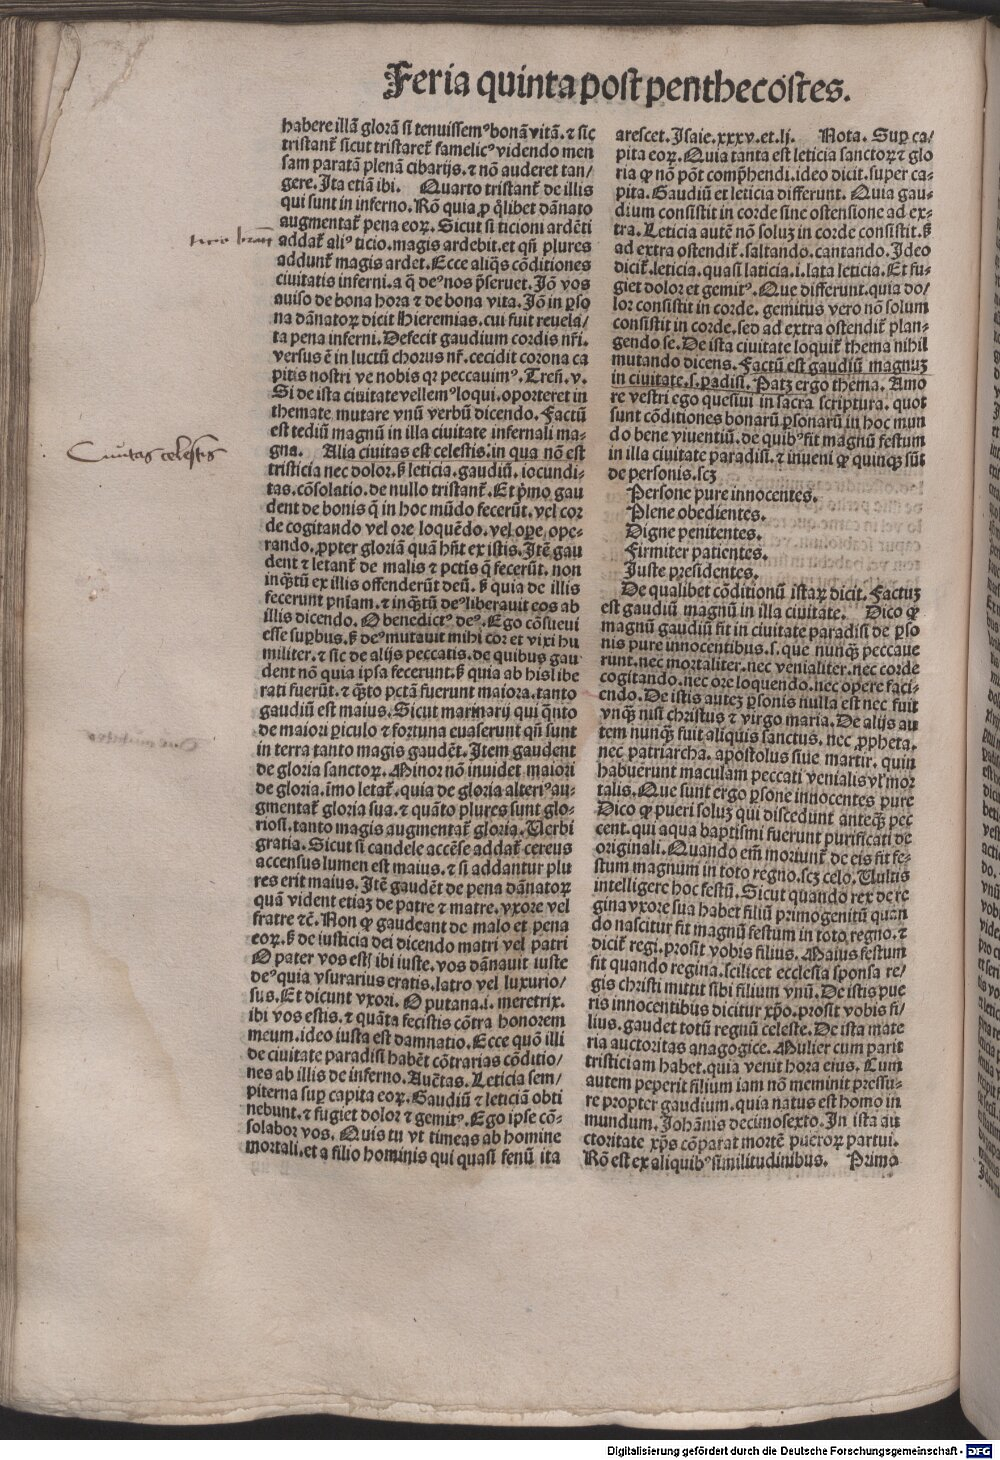 Feria quinta post penthecostes.
habere illā glorā si tenuissemꝰ bonā vitā. ⁊ sic
tristant̄ sicut tristaret̄ famelicꝰ videndo men
sam paratā plenā cibarijs. ⁊ nō auderet tan/
gere. Ita etiā ibi. Quarto tristant̄ de illis
qui sunt in inferno. Rō quia ꝓ q̄libet dānato
augmentat̄ pena eoꝝ. Sicut si ticioni ardēti
addat̄ aliꝰ ticio. magis ardebit. et qn̄ plures
addunt̄ magis ardet. Ecce aliq̄s cōditiones
ciuitatis inferni. a q̄ deꝰ nos p̄seruet. Iō vos
auiso de bona hora ⁊ de bona vita. Iō in ꝑso
na dānatoꝝ dicit Hieremias. cui fuit reuela/
ta pena inferni. Defecit gaudium cordis nr̄i.
versus ē in luctū chorus nr̄. cecidit corona ca
pitis nostri ve nobis qꝛ peccauimꝰ. Treñ. v.
Si de ista ciuitate vellemꝰ loqui. oporteret in
themate mutare vnū verbū dicendo. Factū
est tediū magnū in illa ciuitate infernali ma-
gna. Alia ciuitas est celestis. in qua nō est
tristicia nec dolor. ꝫ leticia. gaudiū. iocundi-
tas. cōsolatio. de nullo tristant̄. Et p̄mo gau
dent de bonis q̄ in hoc mūdo fecerūt. vel cor
de cogitando vel ore loquēdo. vel oꝑe ope-
rando. ꝓpter gloriā quā hn̄t ex istis. Itē gau
dent ⁊ letant̄ de malis ⁊ pctīs q̄ fecerūt. non
inqͣstū ex illis offenderūt deū. ꝫ quia de illis
fecerunt pn̄iam. ⁊ inqͣtū deꝰ liberauit eos ab
illis dicendo. O benedictꝰ deꝰ. Ego cōsueui
esse suꝑbus. ꝫ deꝰ mutauit mihi cor et vixi hu
militer. ⁊ sic de alijs peccatis. de quibus gau
dent nō quia ipsa fecerunt. ꝫ quia ab his libe
rati fuerūt. ⁊ qͣto pctā fuerunt maiora. tanto
gaudiū est maius. Sicut marinarij qui qͣnto
de maiori ꝑiculo ⁊ fortuna euaserunt qn̄ sunt
in terra tanto magis gaudēt. Item gaudent
de gloria sanctoꝝ. Minor nō inuidet maiori
de gloria. īmo letat̄. quia de gloria alteriꝰ au-
gmentat̄ gloria sua. ⁊ quāto plures sunt glo-
riosi. tanto magis augmentat̄ gloria. Uerbi
gratia. Sicut si candele accēse addat̄ cereus
accensus lumen est maius. ⁊ si addantur plu
res erit maius. Itē gaudēt de pena dānatoꝝ
quā vident etiaꝫ de patre ⁊ matre. vxore vel
fratre ⁊c̄. Non ꝙ gaudeant de malo et pena
eoꝝ. ꝫ de iusticia dei dicendo matri vel patri
O pater vos estꝭ ibi iuste. vos dānauit iuste
deꝰ quia vsurarius eratis. latro vel luxurio/
sus. Et dicunt vxori. O putana. i. meretrix.
ibi vos estis. ⁊ quāta fecistis cōtra honorem
meum. ideo iusta est damnatio. Ecce quō illi
de ciuitate paradisi habēt cōtrarias cōditio/
nes ab illis de inferno. Auc̄tas. Leticia sem/
piterna suꝑ capita eoꝝ. Gaudiū ⁊ leticiā obti
nebunt. ⁊ fugiet dolor ⁊ gemitꝰ. Ego ipse cō-
solabor vos. Quis tu vt timeas ab homine
mortali. et a filio hominis qui quasi fenū ita
arescet. Isaie. xxxv. et. lj. Nota. Suꝑ ca/
pita eoꝝ. Quia tanta est leticia sanctoꝝ ⁊ glo
ria ꝙ nō pōt comp̄hendi. ideo dicit. super ca-
pita. Gaudiū et leticia differunt. Quia gau-
dium consistit in corde sine ostensione ad ex-
tra. Leticia autē nō soluꝫ in corde consistit. ꝫ
ad extra ostendit̄. saltando. cantando. Ideo
dicit̄. leticia. quasi laticia. i. lata leticia. Et fu-
giet dolor et gemitꝰ. Que differunt. quia do/
lor consistit in corde. gemitus vero nō solum
consistit in corde. sed ad extra ostendit̄ plan-
gendo se. De ista ciuitate loquit̄ thema nihil
mutando dicens. Factū est gaudiū magnuꝫ
in ciuitate. s. ꝑadisi. Patꝫ ergo thema. Amo
re vestri ego quesiui in sacra scriptura. quot
sunt cōditiones bonarū ꝑsonarū in hoc mun
do bene viuentiū. de quibꝰ fit magnū festum
in illa ciuitate paradisi. ⁊ inueni ꝙ quinqꝫ sūt
de personis. scꝫ
Persone pure innocentes.
Plene obedientes.
Digne penitentes.
Firmiter patientes.
Iuste presidentes.
De qualibet cōditionū istaꝝ dicit. Factuꝫ
est gaudiū magnū in illa ciuitate. Dico ꝙ
magnū gaudiū fit in ciuitate paradisi de ꝑso
nis pure innocentibus. s. que nunqͣꝫ peccaue
runt. nec mortaliter. nec venialiter. nec corde
cogitando. nec ore loquendo. nec opere faci-
endo. De istis auteꝫ ꝑsonis nulla est nec fuit
vnqͣꝫ nisi christus ⁊ virgo maria. De alijs au
tem nunqͣꝫ fuit aliquis sanctus. nec ꝓpheta.
nec patriarcha. apostolus siue martir. quin
habuerunt maculam peccati venialis vl̄ mor
talis. Que sunt ergo ꝑsone innocentes pure
Dico ꝙ pueri soluꝫ qui discedunt anteqͣꝫ pec
cent. qui aqua baptismi fuerunt purificati de
originali. Quando em̄ moriunt̄ de eis fit fe-
stum magnum in toto regno. scꝫ celo. Uultis
intelligere hoc festū. Sicut quando rex de re
gina vxore sua habet filiū primogenitū quan
do nascitur fit magnū festum in toto regno. ⁊
dicit̄ regi. prosit vobis filius. Maius festum
fit quando regina. scilicet ecclesia sponsa re/
gis christi mittit sibi filium vnū. De istis pue
ris innocentibus dicitur xp̄o. prosit vobis fi/
lius. gaudet totū regnū celeste. De ista mate
ria auctoritas anagogice. Mulier cum parit
tristiciam habet. quia venit hora eius. Cum
autem peperit filium iam nō meminit pressu-
re propter gaudium. quia natus est homo in
mundum. Johānis decimosexto. In ista au
ctoritate xp̄s cōparat mortē pueroꝝ partui.
Rō est ex aliquibꝰ similitudinibus. Prima
Ciuitas celestis
Digitalisierung gefördert durch die Deutsche Forschungsgemeinschaft - DFG